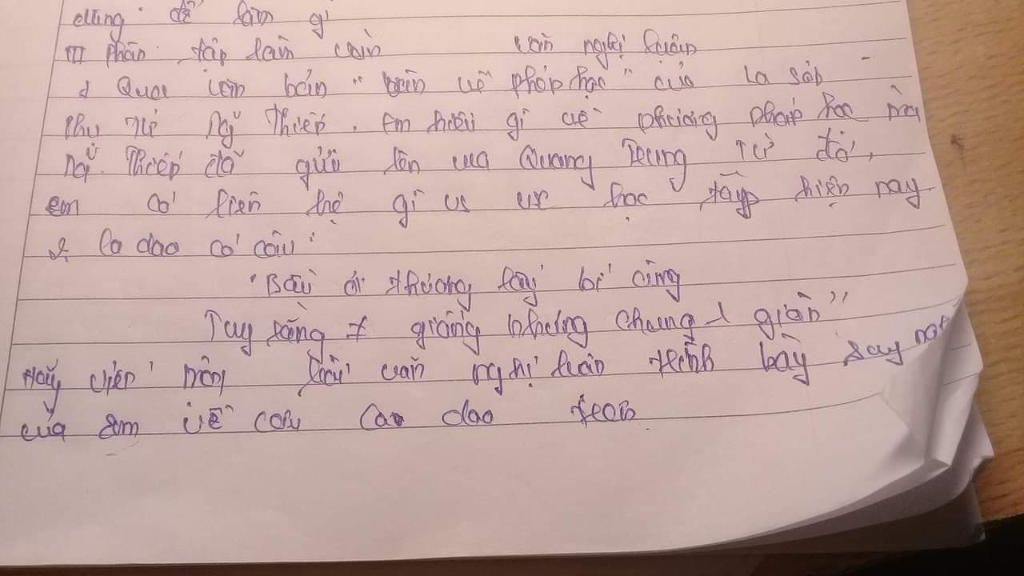 dùng để làm gì
III phần tập làm văn văn nghị luận
1 Qua văn bản "bàn về phép học" của La Sơn
Phu Tử Ng~ Thiếp. Em hiểu gì về phương pháp học mà
Ng~ Thiếp đã gửi lên vua Quang Trung từ đó,
em có liên hệ gì vs vc học tập hiện nay
2, Ca dao có câu:
"Bầu ơi thương lấy bí cùng
Tuy rằng ≠ giống nhưng chung 1 giàn"
Hãy viết một bài văn nghị luận trình bày suy nghĩ
của em về câu ca dao trên